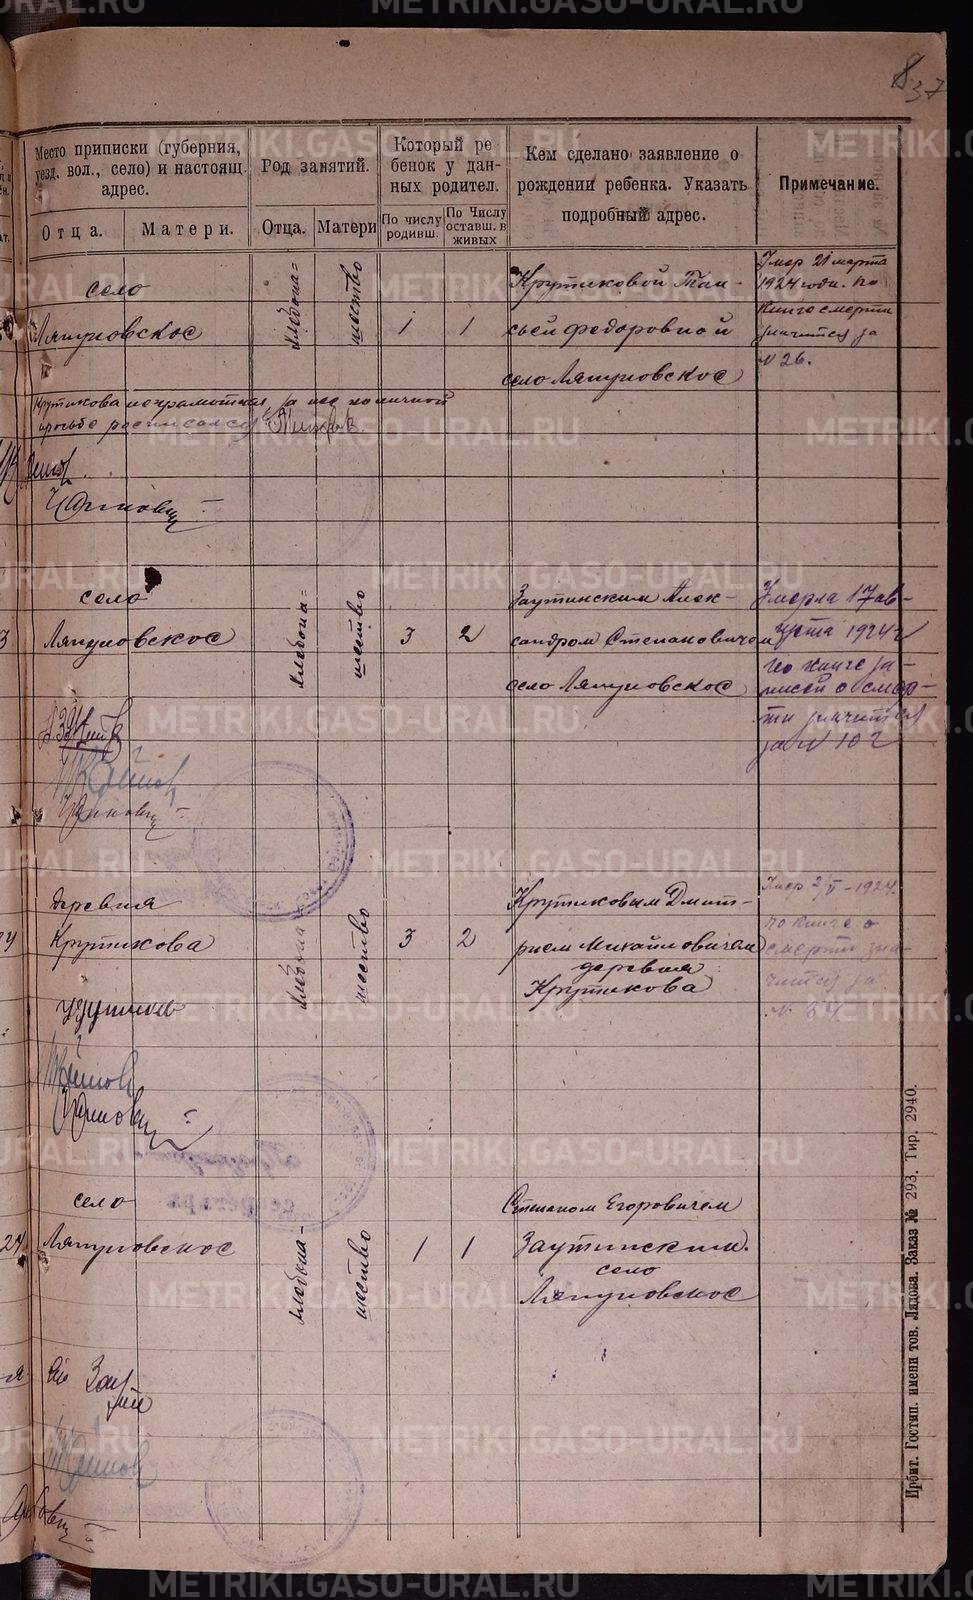 METRIKI.GASO-URAL.RU
37
Место приписки (губерния, уезд, вол., село) и настоящ. адрес.
Род занятий.
Который ребенок у данных родител.
Кем сделано заявление о рождении ребенка. Указать подробный адрес.
Примечание.
Отца.
Матери.
Отца.
Матери
По числу родивш.
По Числу оставш. в живых
село
Ляпуновское
хлебопа=
шество
1
1
Крутиковой Таи-
сьей федоровной
село Ляпуновское
Умер 21 марта
1924 года. по
книге смерти
значится за
№ 26.
Крутикова неграмотная, за нее по личной
просьбе расписался
село
Ляпуновское
хлебопа=
шество
3
2
Заутинским Алек-
сандром Степановичем
село Ляпуновское
Умерла 17 ав-
густа 1924 г
по книге за-
писей о смер-
ти значится
за № 102
деревня
Крутикова
хлебопа
шество
3
2
Крутиковым Дмит-
рием Михайловичем
деревня
Крутикова
1924.
по книге о
смерти зна-
чится за
№
село
Ляпуновское
хлебопа-
шество
1
1
Степаном Егоровичем
Заутинским.
село
Ляпуновское
Ирбит. Гостип. имени тов. Лядова. Заказ № 293. Тир. 2940.